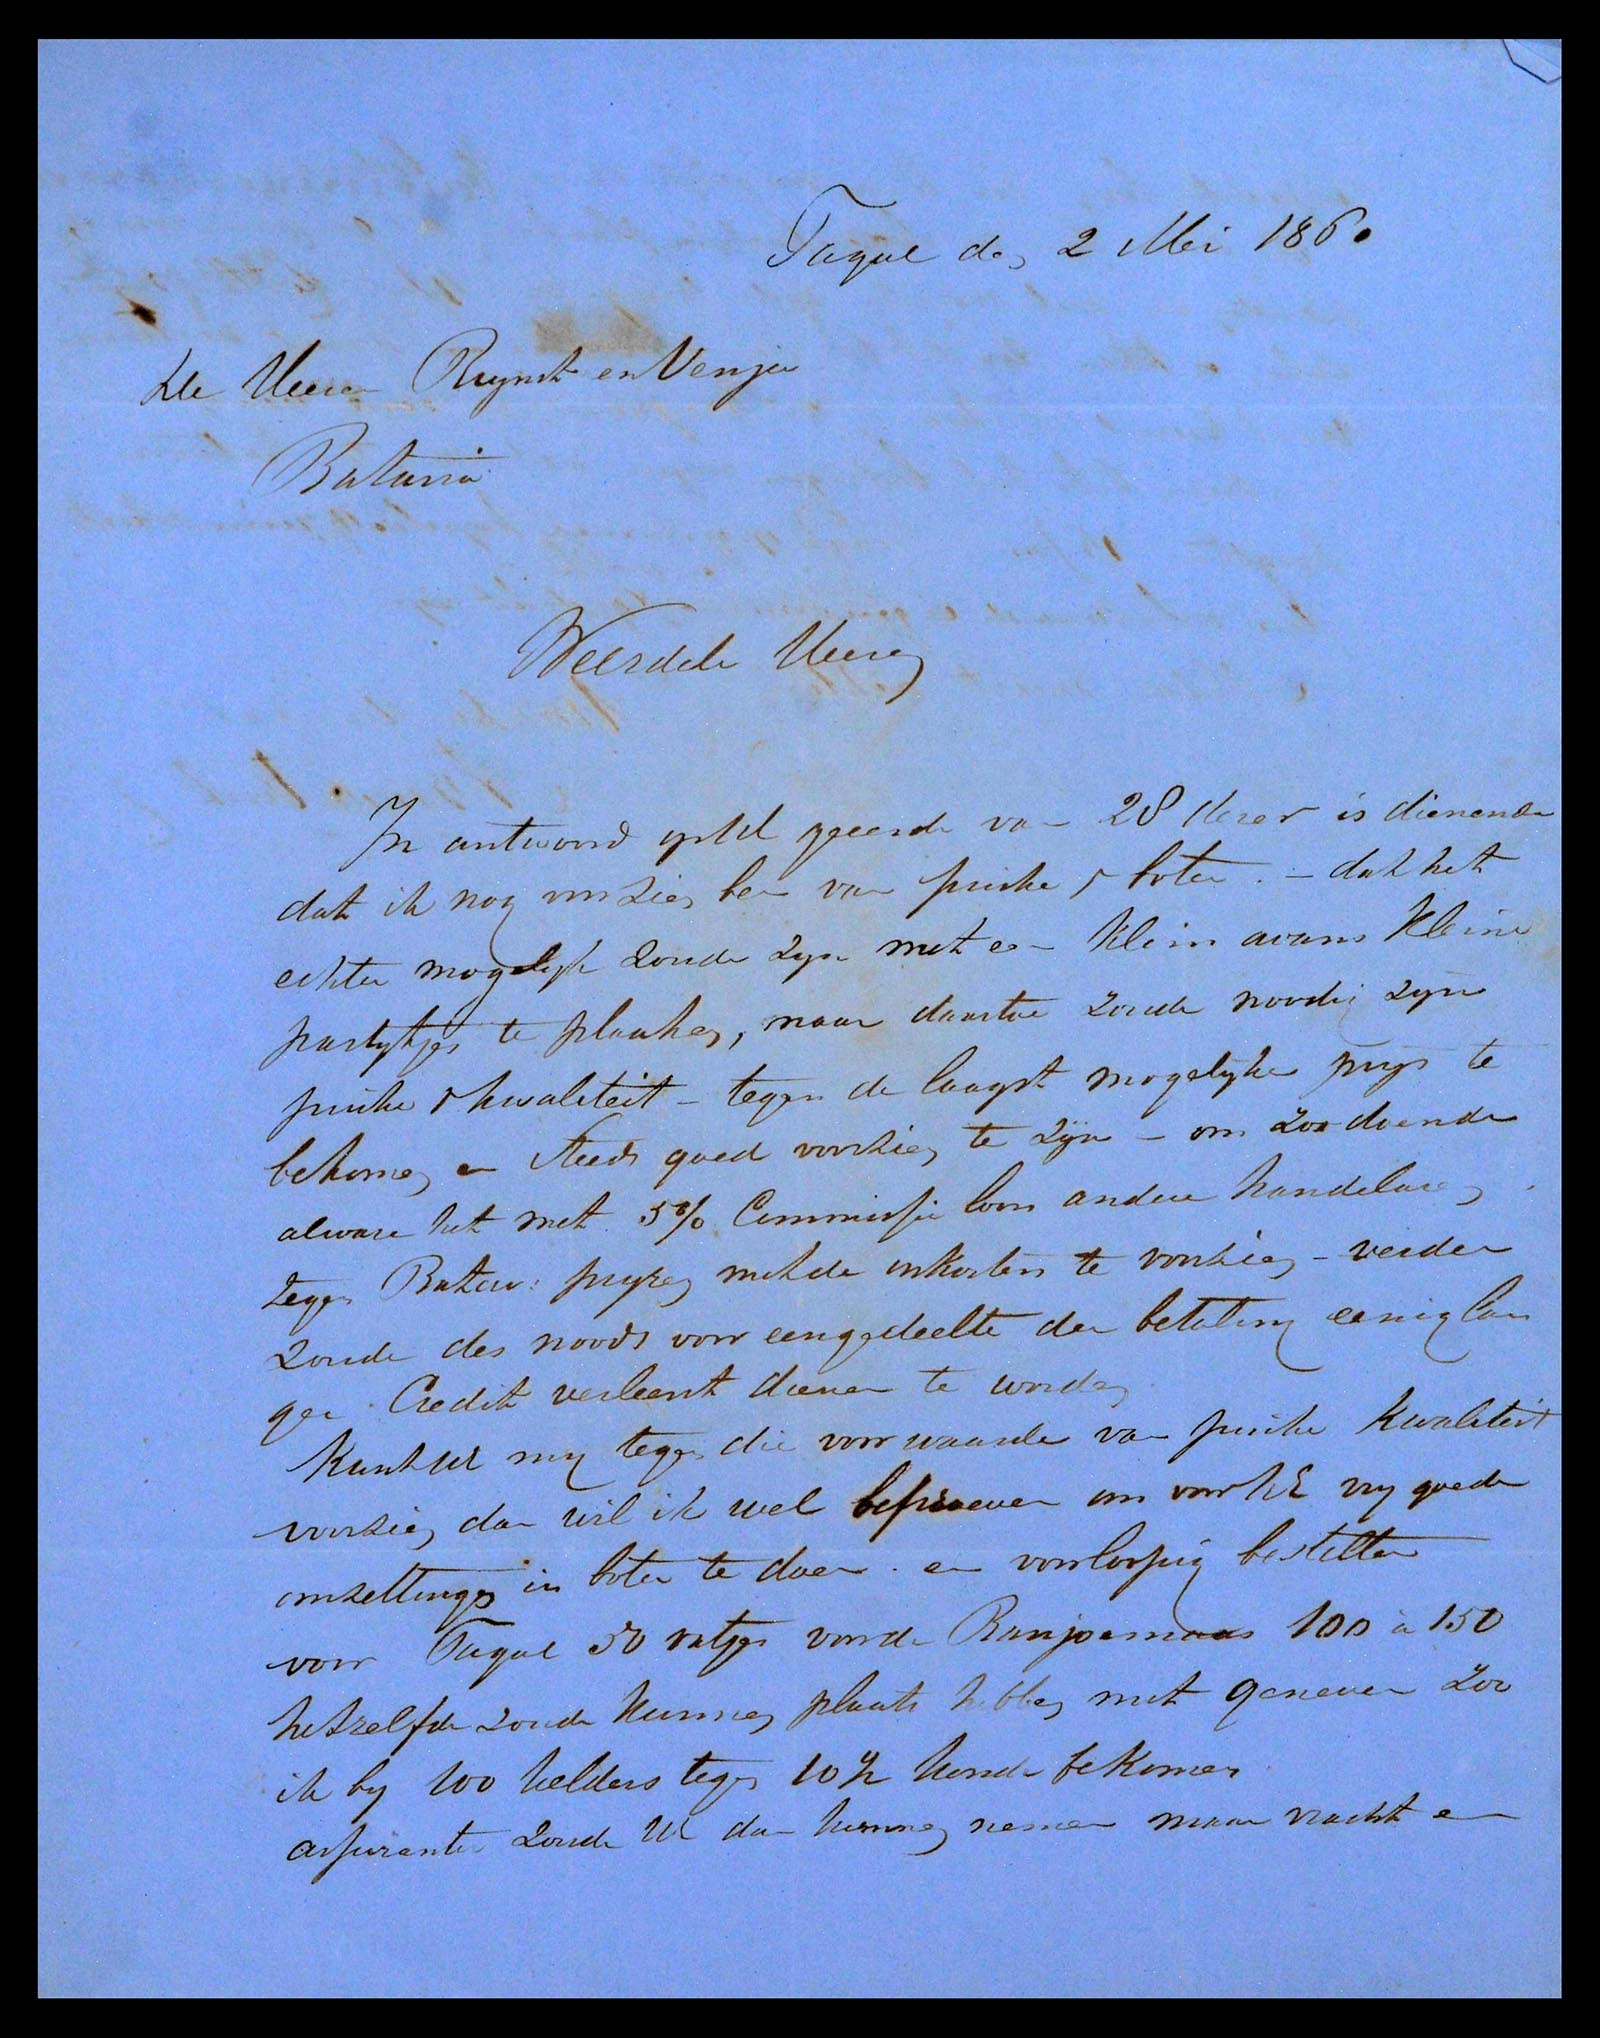 Tagal den 2 Mei 1860
De Heeren Reynst en Vinju
Batavia
Weerdele Heeren
In antwoord op UE geeerde van 28 dezer is dienende
dat ik nog voorzien ben van frissche boter. - dat het
echter mogelyk zoude zyn met een klein avans kleine
partytjes te plaatsen, maar daartoe zoude noodig zyn
frissche kwaliteit - tegen de laagst mogelyke prys te
bekomen en steeds goed voorzien te zyn - om zoodoende
alware het met 5% Commissie loon andere handelaren
tegen Batav: pryzen met de onkosten te voorzien - verder
zoude des noods voor een gedeelte der betaling eenig lan
ger Credit verleent dienen te worden
Kunt UE my tegen die voorwaarde van frissche kwaliteit
voorzien dan wil ik wel beproeven om voor UE vry goede
omzettingen in boter te doen. en voorloopig bestellen
voor Tagal 50 vatjes voor de Banjoemaas 100 à 150
hetzelfde zoude kunnen plaats hebben met genever zoo
ik by 100 kelders tegen 10½ konde bekomen
assurantie zoude UE dan kunnen nemen maar vracht en